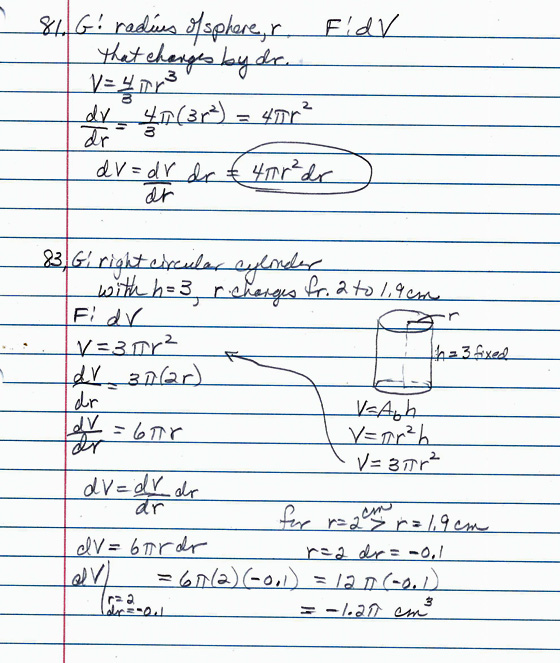 81. G: radius of sphere, r    F: dV
that changes by dr.
V = 4/3 πr³
dV/dr = 4/3 π(3r²) = 4πr²
dV = dV/dr dr = 4πr² dr
83, G: right circular cylinder
with h=3, r changes fr. 2 to 1.9cm
F: dV
r
V = 3πr²
h = 3 fixed
dV/dr = 3π(2r)
V = A_b h
dV/dr = 6πr
V = πr²h
V = 3πr²
dV = dV/dr dr
for r = 2 cm > r = 1.9 cm
dV = 6πr dr
r = 2 dr = -0.1
dV| r=2 dr=-0.1 = 6π(2)(-0.1) = 12π(-0.1)
= -1.2π cm³